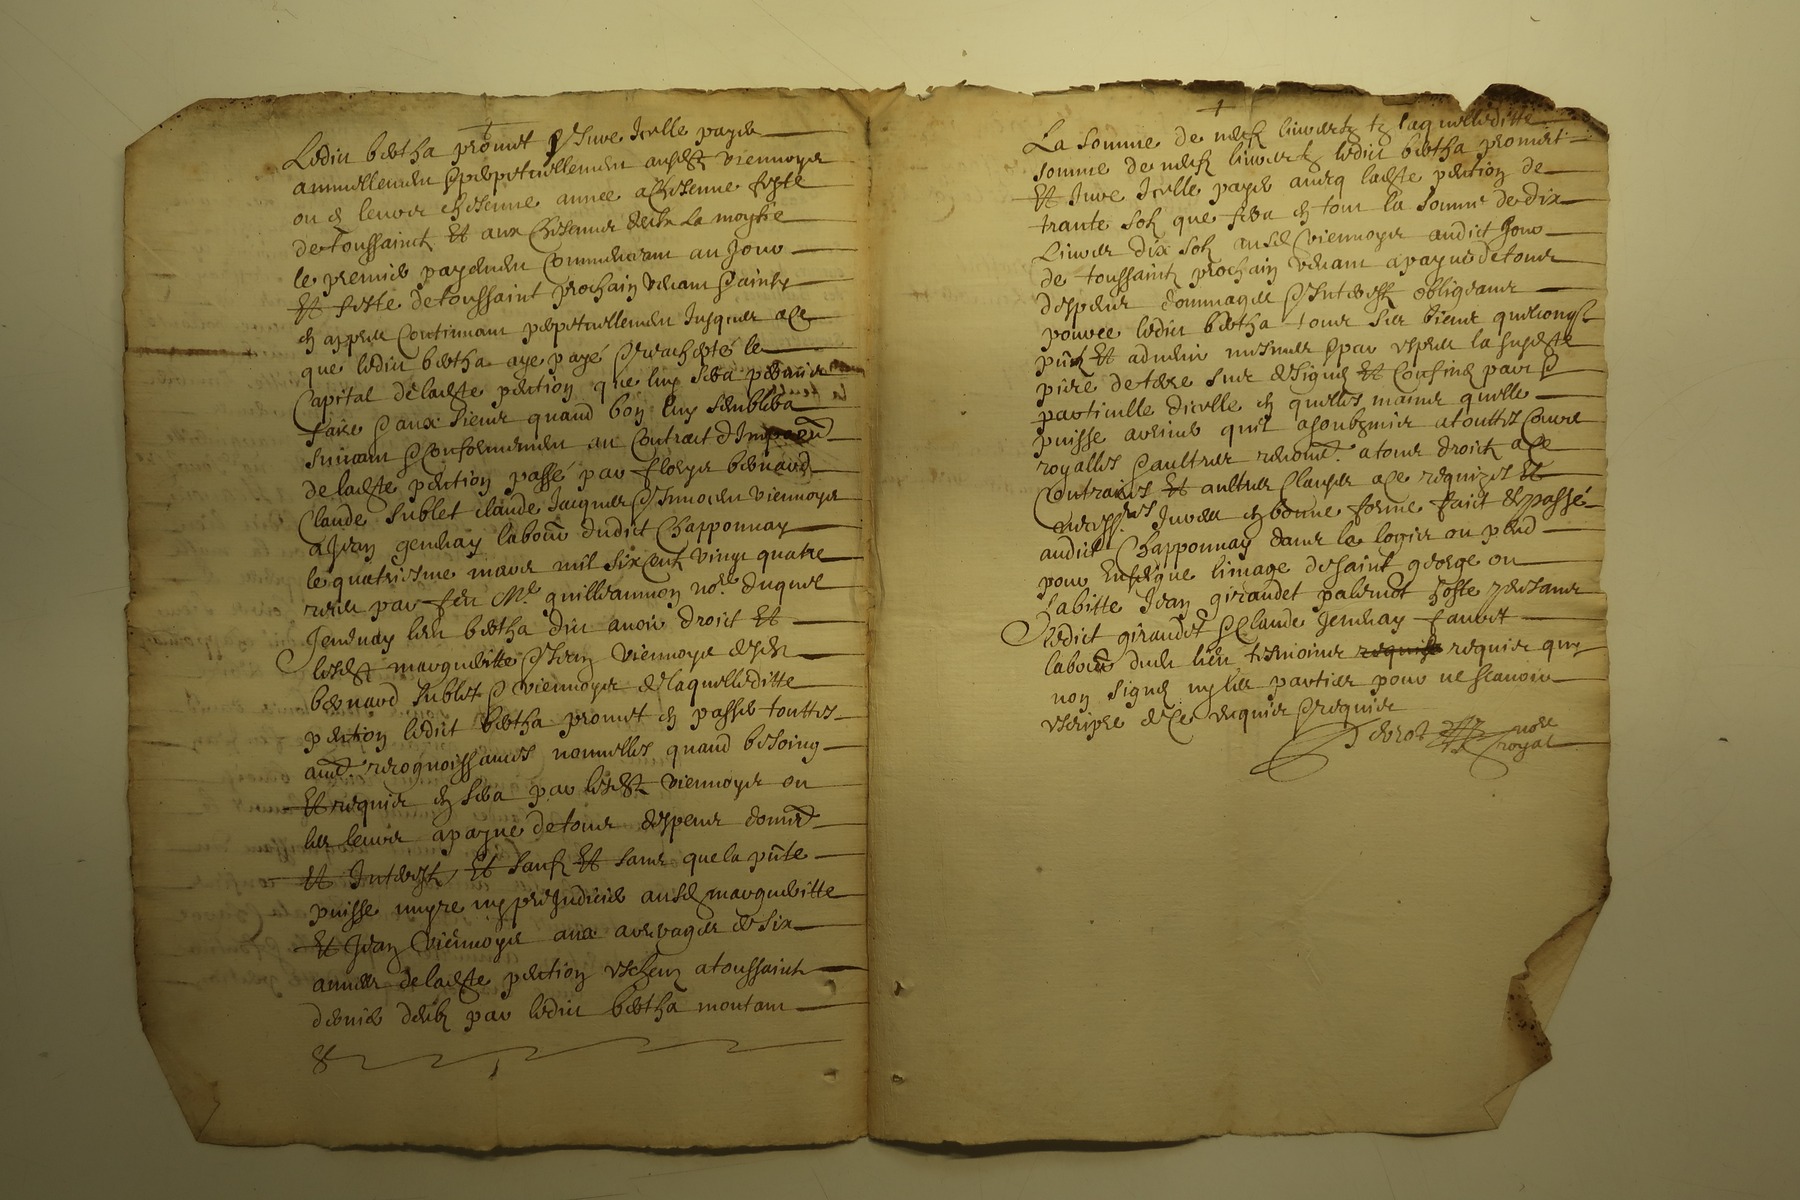 Ledict bertha promet & Jure Icelle payer
annuellement & perpetuellement ausdt viennoyer
ou es leurs chescune annee a chescune feste
de toussainct Et aux Chescunes dicelx La moytie
le premier payement Commencant au Jour
Et feste de toussaint prochain venant & ainsy
en appres Continuant perpetuellement Jusques a Ce
que ledict bertha aye payé & rachepté le
Capital de ladte pention que luy sera permis
faire & aux siens quand bon luy semblera
suivant & Conformement au Contract
de ladte pention passé par bernard
Claude sublet claude Jacques & viennoyer
a Jean genthay labour dudict Chapponnay
le quatriesme mars mil six Cent vingt quatre
receu par feu Me guillieaumon nore duquel
Jenthay ledt bertha dict avoir droict Et
lesdt margueritte & Jean viennoyer desdt
bernard sublet & viennoyer de laquelleditte
pention ledict bertha promet en passer touttes
aud. recognoissances nouvelles quand besoing
Et requis en sera par lesdt viennoyer ou
les leurs a payne de tous despens domd
Et Interestz Et sauf Et sans que la pnte
puisse nuyre ny prejudicier ausd margueritte
Et Jean viennoyer aux arreyrages de six
annees de ladte pention escheuz a toussaint
dernier deubz par ledict bertha montant
&
La somme de neuf livres tz laquelleditte
somme de neuf livres ledict bertha promet
Et Jure Icelle payer avecq ladte pention de
trante solz que sera en tout la somme de dix
Livres dix solz ausd viennoyer audict Jour
de toussaint prochain venant a payne de tous
despens dommages & Interestz obligeant
pource ledict bertha tous ses biens quelconqz
pntz Et advenir mesmes & par expres la susdte
piece de terre sus designe Et Confine par &
particulle dicelle en quelles mains quelle
puisse advenir quil a soubzmis a touttes Cours
royalles & aultres renonct. a tous droict a Ce
Contraires Et aultres Clauses a Ce requizes Et
necesses Jurees en bonne forme faict & passé
audict Chapponnay dans le logis ou pend
pour Enseigne limage de saint george ou
habitte Jean giraudet palernot hoste presants
Ledict giraudet & Claude Jenthay fauvet
labour dudt lieu tesmoins requis qui
non signe ny les parties pour ne scavoir
escripre de Ce enquis & requis
nore
royal